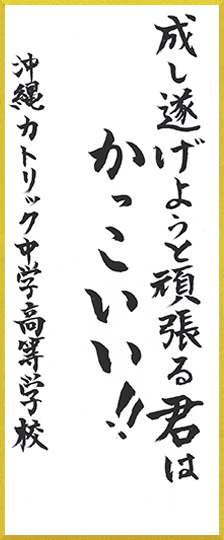 成し遂げようと頑張る君は
かっこいい!!
沖縄カトリック中学高等学校